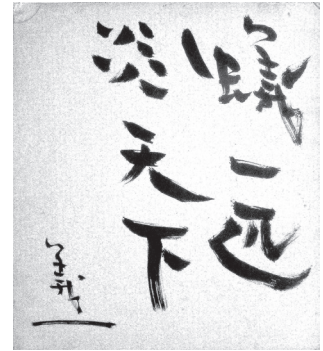 蟻一匹
炎天下